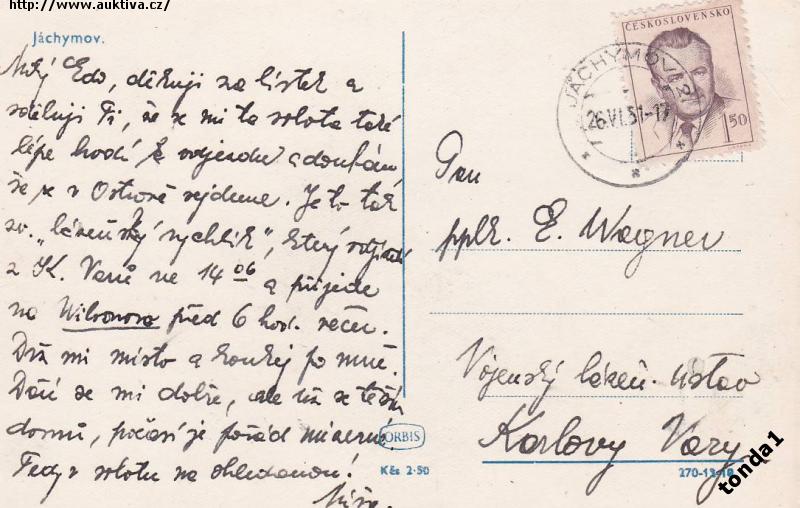 http://www.auktiva.cz/
Jáchymov.
Milý Edo, děkuji za lístek a
sděluji Ti, že se mi ta sobota také
lépe hodí k odjezdu a doufám
že se v Ostrově sejdeme. Je to tak
zv. „lázeňský rychlík", který odjíždí
z K. Varů ve 14 06 a přijede
na Wilsonovo před 6 hod. večer.
Drž mi místo a koukej po mně.
Daří se mi dobře, ale už se těším
domů, počasí je pořád mizerné.
Tedy v sobotu na shledanou!
ČESKOSLOVENSKO
1.50
JÁCHYMOV
26.VI.51-17
Pan
pplk. E. Wagner
Vojenský lázeň. ústav
Karlovy Vary
ORBIS
Kčs 2·50
270-13-10
tonda1